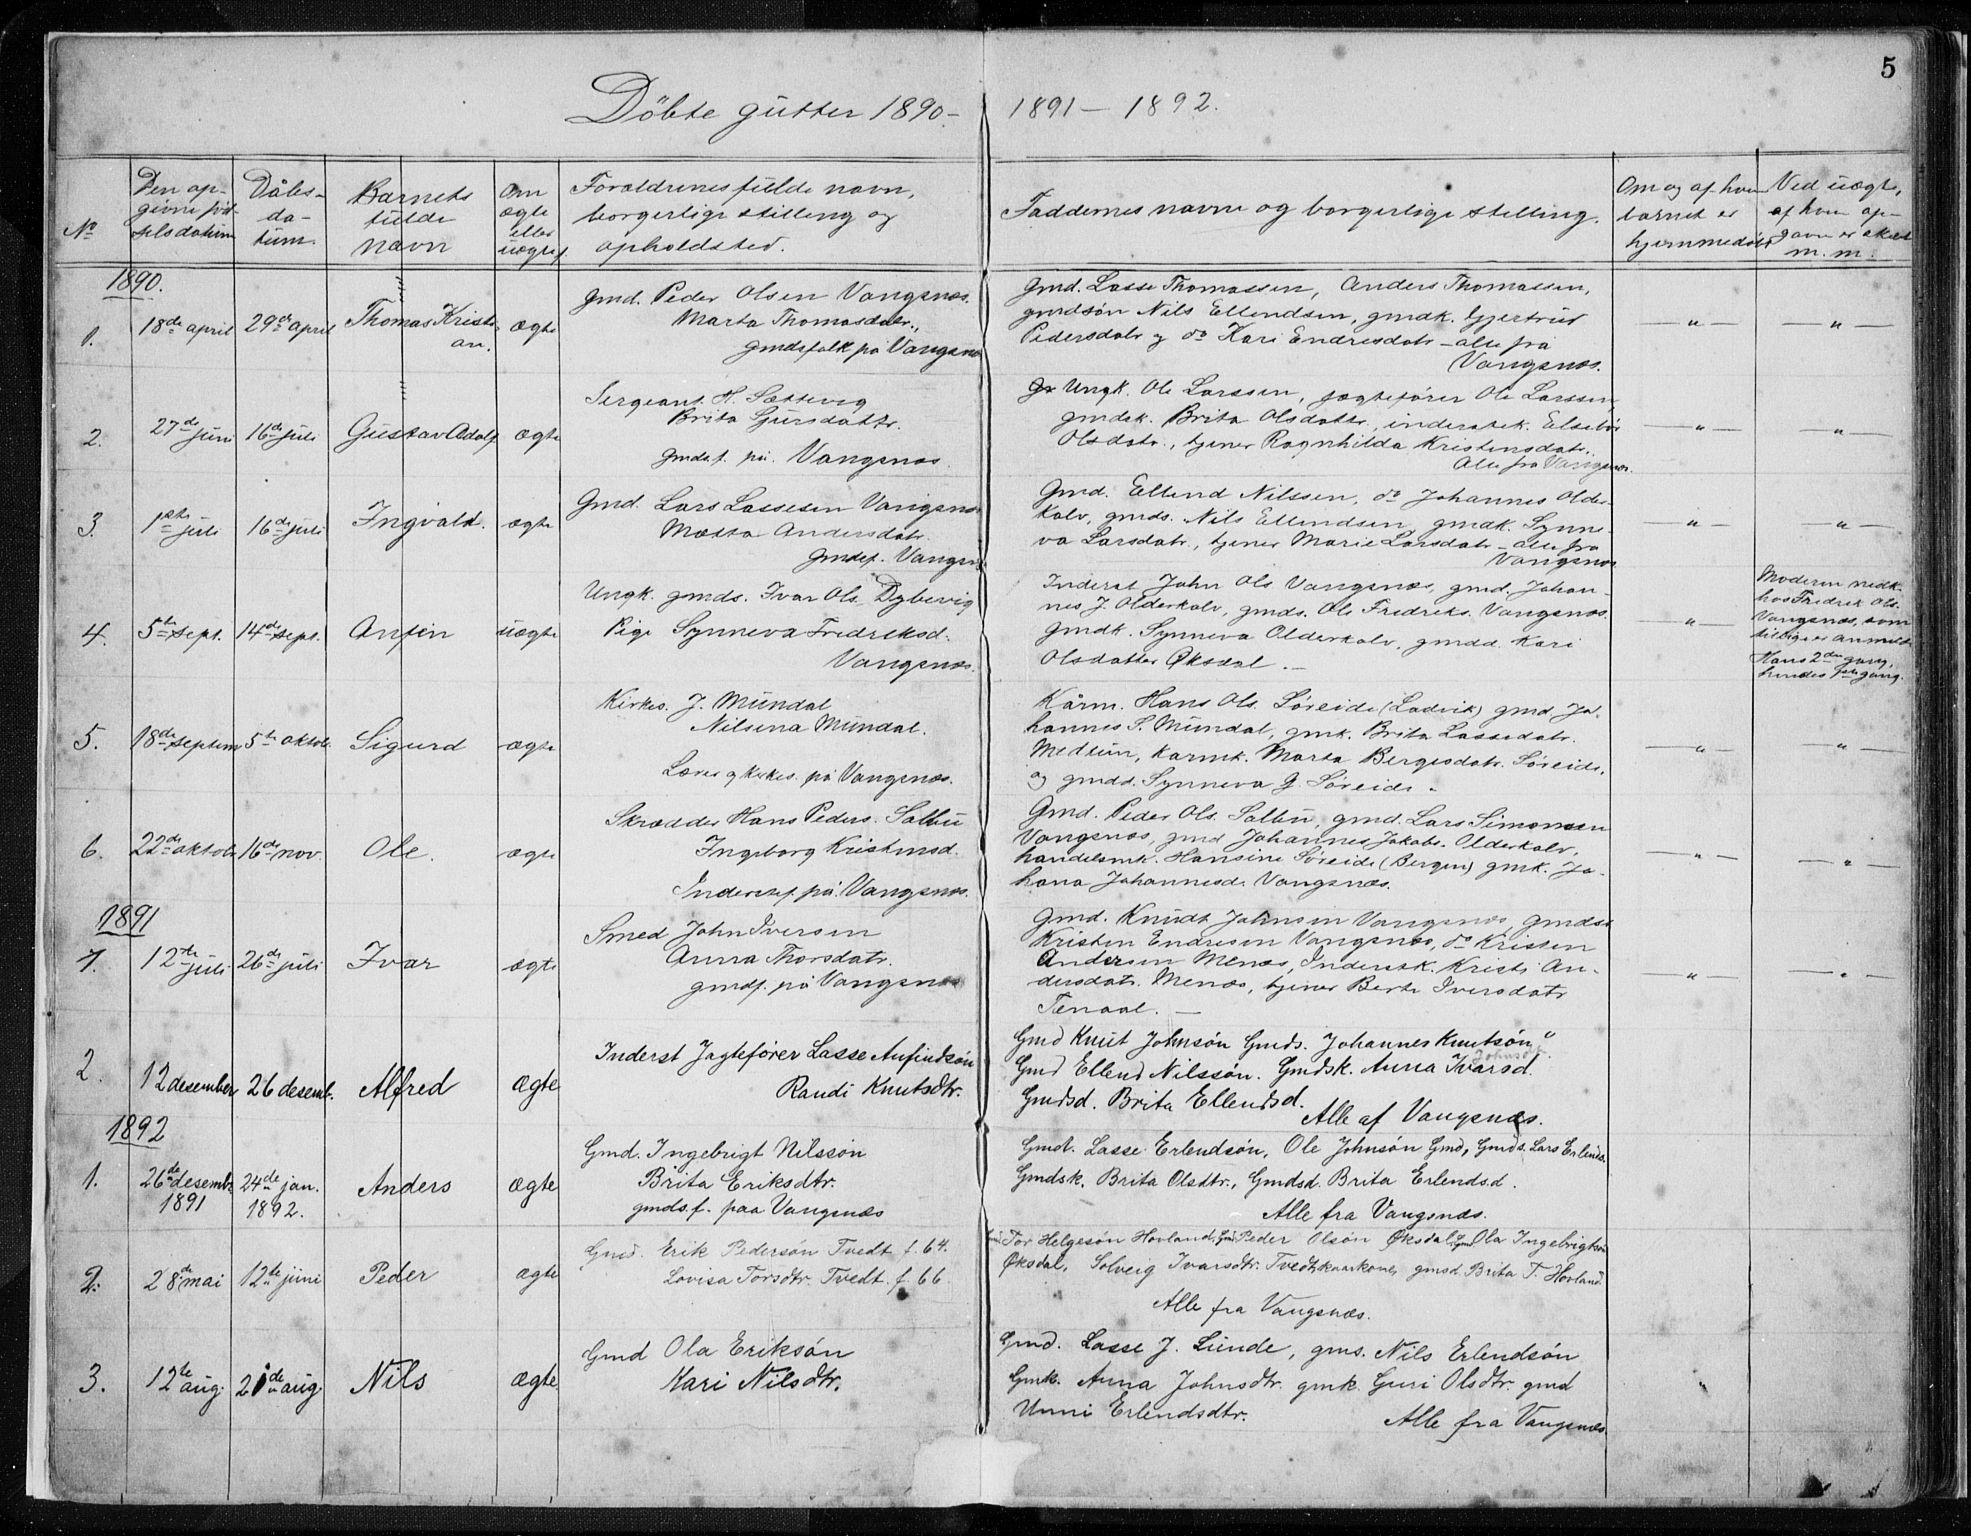 5
Döbte gutter 1890 – 1891 – 1892.
No
Den op-
givne föd-
selsdatum
Dåbs-
da-
tum.
Barnets
fulde
navn
Om
ægte
eller
uægte
Forældrenes fulde navn,
borgerlige stilling og
opholdsted.
Faddernes navne og borgerlige stilling.
Om og af hvem
barnet er
hjemmedøbt
Ved uægte,
af hvem op-
gave er sket
m. m.
1890.
1. 18de april 29de april Thomas Kristi-
an. ægte
Gmd. Peder Olsen Vangsnæs.
Marta Thomasdatr.,
gmdsfolk på Vangsnæs
Gmd. Lasse Thomassen, Anders Thomassen,
gmdsön Nils Ellendsen, gmdk. Gjertrud
Pedersdatr og do Kari Endresdatr – alle fra
Vangsnæs.
– " – – " –
2. 27de juni 16de juli Gustav Adolf ægte
Sergeant H. Sættevig
Brita Sjursdattr.
gmdsf. på Vangsnæs.
Ungk. Ole Larssen, jægtefører Ole Larssen,
gmdsk. Brita Olsdattr., inderstk. Elsebe
Olsdatr., tjener Ragnhilda Kristensdatr.,
Alle fra Vangsnæs.
– " – – " –
3. 1ste juli 16de juli Ingvald. ægte
Gmd. Lars Lassesen Vangsnæs
Marta Andersdatr.
Gmdsf. Vangsn.
Gmd. Ellend Nilssen, do Johannes Older-
kalv, gmds. Nils Ellendsen, gmdk. Synne-
va Larsdatr., tjener Marie Larsdatr – alle fra
Vangsnæs
– " – – " –
4. 5te sept. 14de sept. Anfin uægte
Ungk. gmds. Ivar Ols. Dybevig
Pige Synneva Fredriksd.
Vangsnæs.
Inderst John Ols. Vangsnæs, gmd. Johan-
nes J. Olderkalv, gmds. Ole Fredriks. Vangsnæs.
gmdk. Synneva Olderkalv, gmdd. Kari
Olsdatter Øksdal. –
– " –
Moderen nedk.
hos Fredrik Ols.
Vangsnæs, som
tillige er anmeld.
Hans 2den gang,
hendes 1ste gang.
5. 18de septem 5te oktob. Sigurd ægte
Kirkes. J. Mundal
Nilsina Mundal.
Lærer og kirkes. på Vangsnæs.
Kårm. Hans Ols. Søreide (Ladvik) gmd Jo-
hannes S. Mundal, gmk. Brita Lassedatr.
Medlun, kårmk. Marta Bergesdatr. Søreide,
og gmdd. Synneva G. Søreide.
– " – – " –
6. 22de oktob. 16de nov. Ole. ægte
Skrædder Hans Peders. Salbu
Ingeborg Kristensd.
Inderstf. på Vangsnæs.
Gmd. Peder Ols. Salbu, gmd. Lars Simonsen
Vangsnæs, gmd Johannes Jakobs. Olderkalv,
handelsmk. Hansine Søreide (Bergen) gmk. Jo-
hana Johannesdr. Vangsnæs.
– " – – " –
1891
1. 12te juli 26de juli Ivar ægte
Smed John Iversen
Anna Thorsdatr.
gmdf. på Vangsnæs
Gmd. Knudt Johnsen Vangsnæs, gmds.
Kristen Endresen Vangsnæs, do Kristen
Andersen Menæs, Inderstk. Kristi An-
dersdatr. Menæs, tjener Berte Iversdatr
Tenaal. –
– " – – " –
2. 12 desember 26 desemb. Alfred ægte
Inderst Jagtefører Lasse Anfindsön
Randi Knutsdtr.
Gmd Knut Johnsön Gmds. Johannes Knutsön "
Johnsd.
Gmd Ellend Nilssön. Gmdsk. Anna Ivarsd.
Gmdsd. Brita Ellendsd.
Alle af Vangsnæs.
1892
1. 26de desemb. 24de jan. Anders ægte
1891 1892.
Gmd. Ingebrigt Nilssön
Brita Eriksdtr.
gmds.f. paa Vangsnæs
Gmd. Lasse Erlendsön, Ole Johnsön Gmd, Gmds. Lars Erlends.
Gmdsk. Brita Olsdtr., Gmdsd. Brita Erlendsd.
Alle fra Vangsnæs.
2. 28de mai 12te juni Peder ægte
Gmd. Erik Pedersön Tvedt f. 64.
Lovisa Torsdtr. Tvedt. f. 66.
Gmd Tor Helgesön Hovland, Gmd Peder Olsön Øksdal, Gmd Ola Ingebrigtsön
Øksdal, Solveig Ivarsdtr. Tvedt kaarkone, gmsd. Brita T. Hovland.
Alle fra Vangsnæs.
3. 12te aug. 21de aug. Nils ægte
Gmd Ola Eriksön
Kari Nilsdtr.
Gmd. Lasse J. Lunde, gms. Nils Erlendsön
Gmk. Anna Johnsdtr. gmk. Guri Olsdtr. gmd
Unni Erlendsdtr. Alle fra Vangsnæs